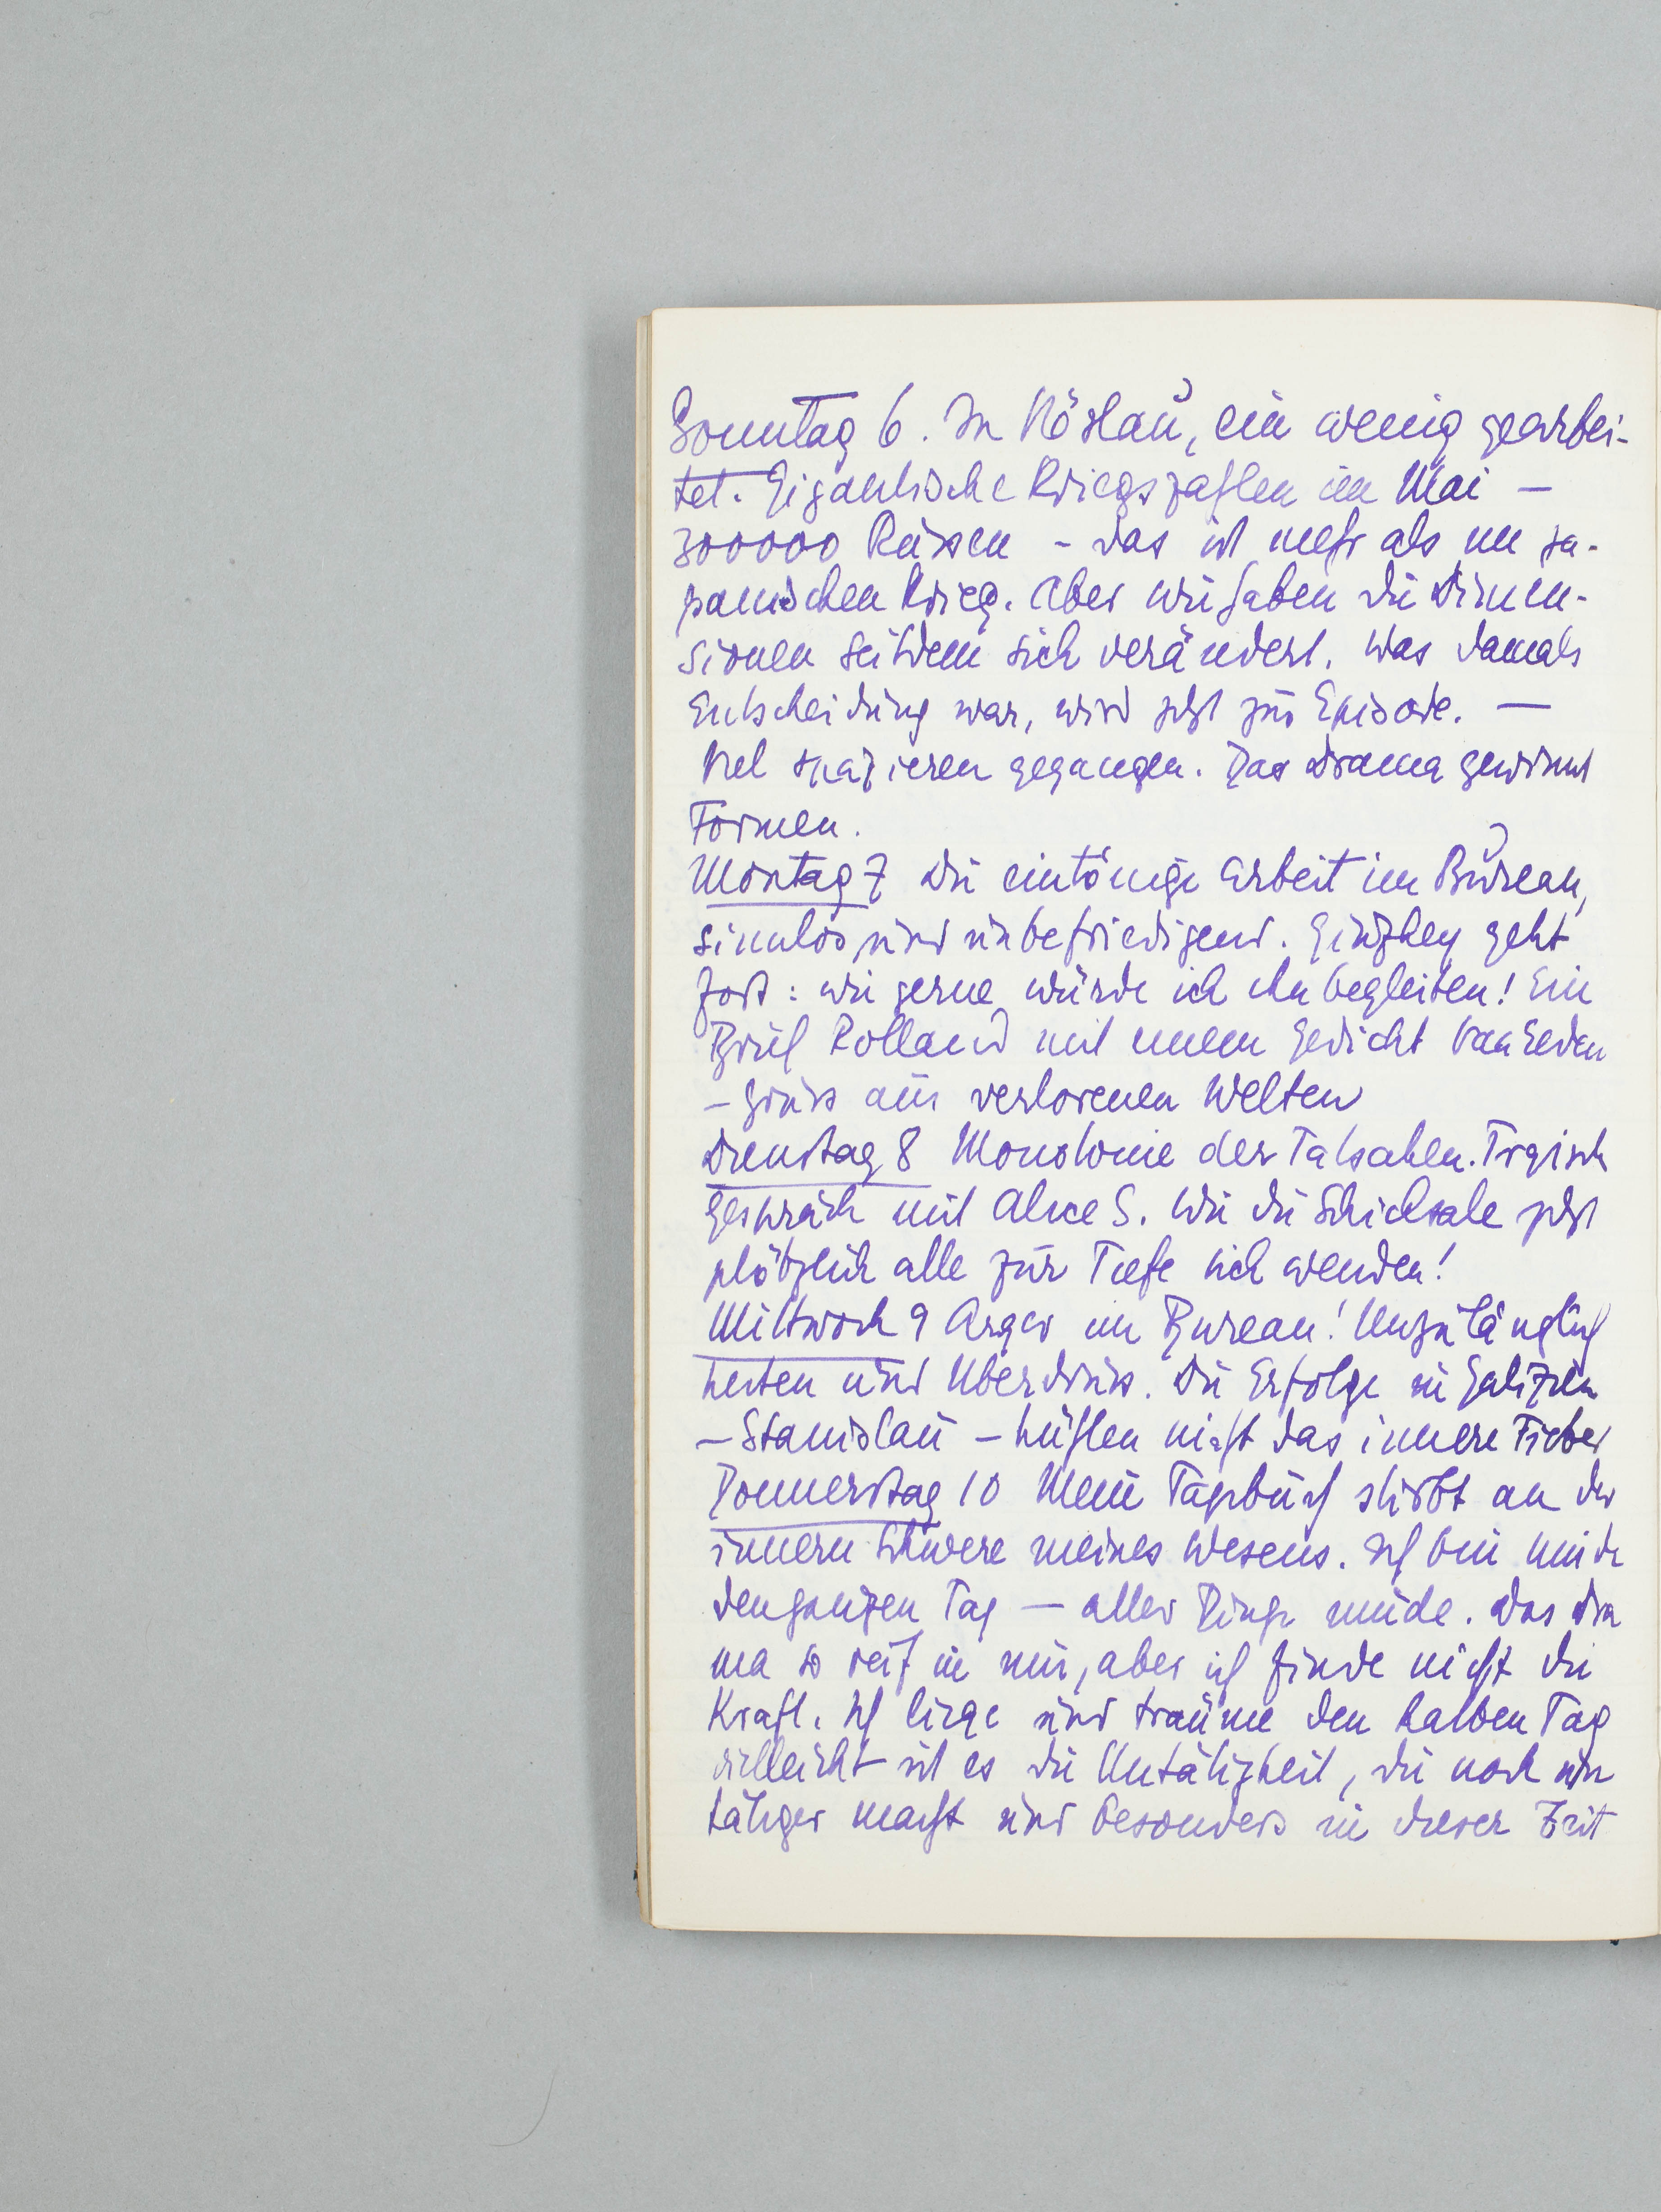 Sonntag 6. In Vöslau, ein wenig gearbei-
tet. Gigantische Kriegszahlen im Mai –
300000 Russen – das ist mehr als im ja-
panischen Krieg. Aber wie haben die Dimen-
sionen seitdem sich verändert. Was damals
Entscheidung war, wird jetzt zur Episode. –
Viel spazieren gegangen. Das Drama gewinnt
Formen.
Montag 7 Die eintönige Arbeit im Bureau,
sinnlos und unbefriedigend. Ginzkey geht
fort: wie gerne würde ich ihn begleiten! Ein
Brief Rolland mit einem Gedicht Van Eeden
– Gruss aus verlorenen Welten
Dienstag 8 Monotonie der Tatsachen. Tragisch
Gespräch mit Alice S. Wie die Schicksale jetzt
plötzlich alle zur Tiefe sich wenden!
Mittwoch 9 Arger im Bureau! Unzulänglich
keiten und Uberdruss. Die Erfolge in Galizien
– Stanislau – kühlen nicht das innere Fieber
Donnerstag 10 Mein Tagebuch stirbt an der
innern Schwere meines Wesens. Ich bin müde
den ganzen Tag – aller Dinge müde. Das Dra
ma so reif in mir, aber ich finde nicht die
Kraft. Ich liege und träume den halben Tag
vielleicht ist es die Untätigkeit, die noch un
tätiger macht und besonders in dieser Zeit